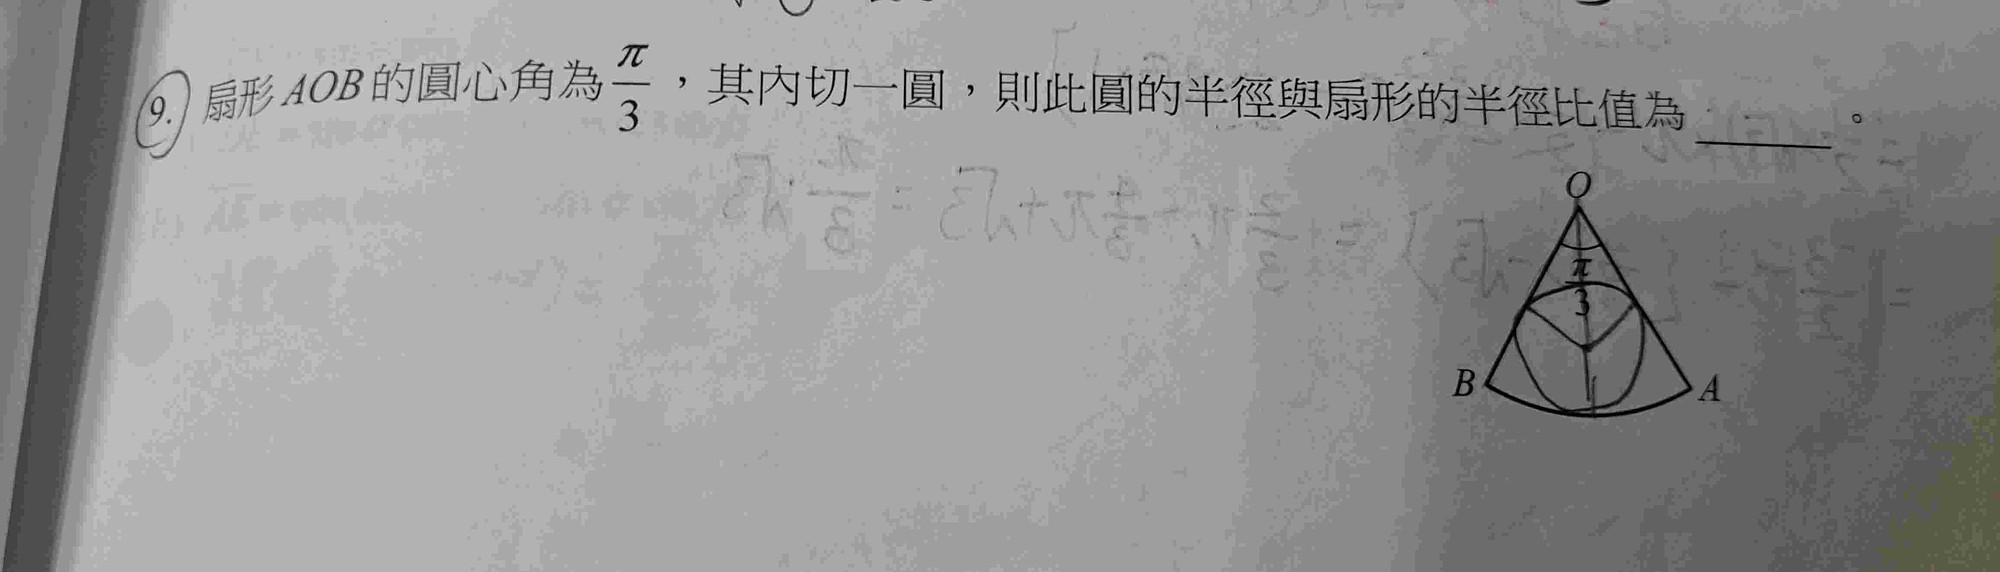 9. 扇形 AOB 的圓心角為 π/3，其內切一圓，則此圓的半徑與扇形的半徑比值為＿＿＿。
O
π/3
B
A